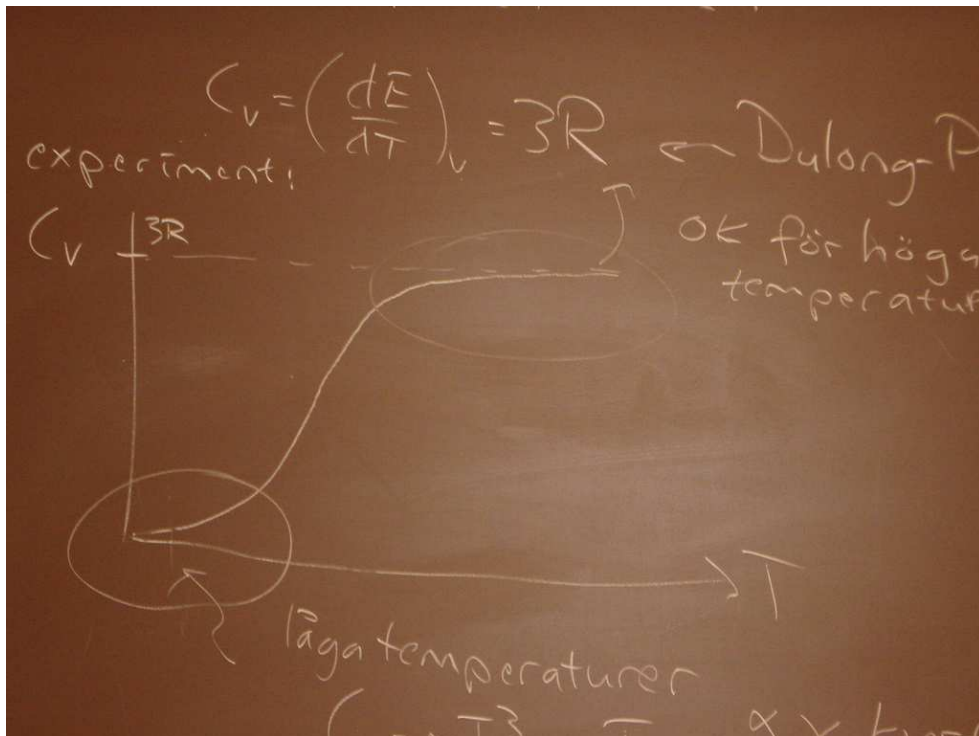 C_v = (dE/dT)_v = 3R ← Dulong-P
experiment:
C_v 3R
OK för höga
temperatur
T
låga temperaturer
T³ T